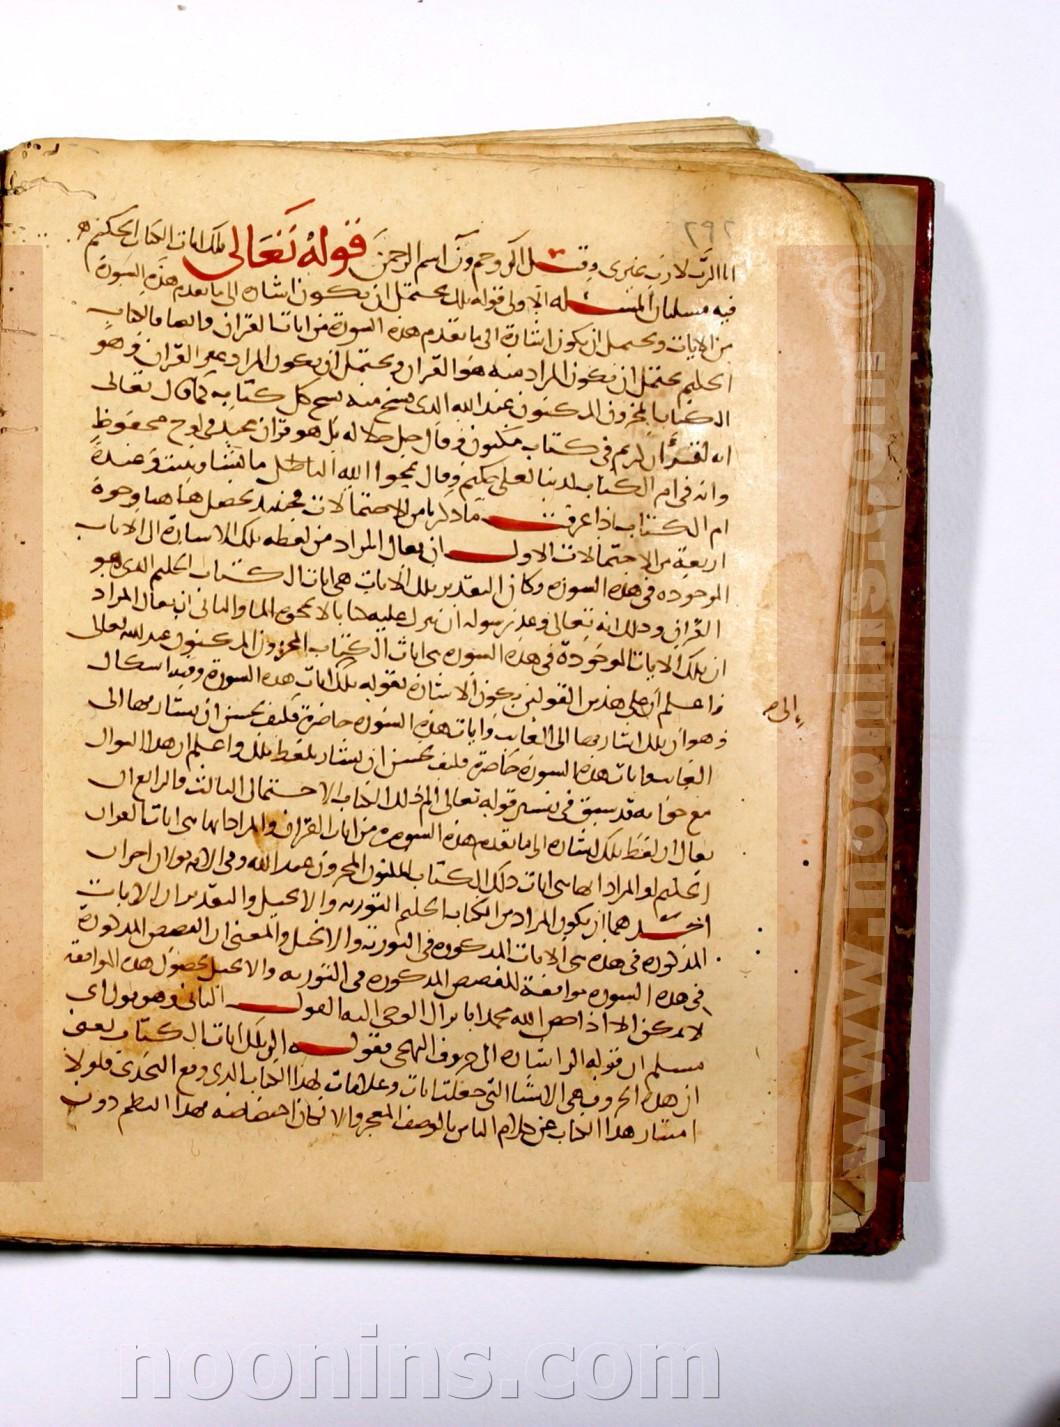 ٢٩٢
انا الرب لا رب غيرى وقيل الر وحم ون اسم الرحمن قوله تعالى تلك ايات الكتاب الحكيم
فيه مسلتان المسئله الاولى قوله تلك يحتمل ان يكون اشاره الى ما تقدم هذه السورة
من الايات ويحتمل ان يكون اشارة الى ما تقدم هذه السورة من ايات القران وايضا فالكتاب
الحكيم يحتمل ان يكون المراد منه هو القران ويحتمل ان يكون المراد غير القران وهو
الكتاب المخزون المكنون عند الله الذى نسخ منه كل كتابه كما قال تعالى
انه لقرأن كريم فى كتاب مكنون وقال جل جلاله بل هو قران مجيد فى لوح محفوظ
وانه فى ام الكتاب لدينا لعلى حكيم وقال يمحوا الله ما يشا ويثبت وعنده
ام الكتاب اذا عرفت ما ذكرنا من الاحتمالات فحينئذ يحصل هاهنا وجوه
اربعة من الاحتمالات الاول ان يقال المراد من لفظه تلك الاسارة الى الايات
الموجوده فى هذه السوره وكان التقدير تلك الايات هى ايات الكتاب الحكيم الذى هو
القران وذلك انه تعالى وعد رسوله ان ينزل عليه كتابا لا يمحوه الما والثانى ان يقال المراد
ان تلك الايات الموجودة فى هذه السوره هى ايات الكتاب المخزون المكنون عند الله تعالى
واعلم ان على هذين القولين يكون الاشارة بقوله تلك ايات هذه السورة وفيه اشكال
وهو ان تلك اشار بها الى الغايب وايات هذه السوره حاضرة فكيف يحسن ان يشار بها الى
الى
الغايب وايات هذه السورة حاضرة فكيف يحسن ان يشار بلفظ تلك واعلم ان هذا السوال
مع جوابه قد سبق فى تفسير قوله تعالى الم ذلك الكتاب الاحتمال الثالث والرابع ان
يقال ان لفظ تلك اشاره الى ما تقدم هذه السورة من ايات القران والمراد انها هى ايات القران
الحكيم او المراد انها هى ايات ذلك الكتاب المكنون المخزون عند الله وفى الايه قولان اخران
احدهما ان يكون المراد من الكتاب الحكيم التوريه والانجيل والتقدير ان الايات
المذكوره فى هذه هى الايات المذكوره فى التورية والانجيل والمعنى ان القصص المذكورة
فى هذه السوره موافقة للقصص المذكوره فى التوريه والانجيل بحصول هذه الموافقة
لا يمكن الا اذا خص الله محمدا بانزال الوحى اليه القول الثانى وهو قول ابى
مسلم ان قوله الر اشاره الى حروف التهجى فقوله الر تلك ايات الكتاب يعنى
ان هذه الحروف هى الاشيا التى جعلت ايات وعلامات لهذا الكتاب الذى وقع التحدى فلولا
امتياز هذا الكتاب عن كلام الناس بالوصف المعجز والا لكان اختصاصه بهذا النظم دون
www.noonins.com ©
noonins.com